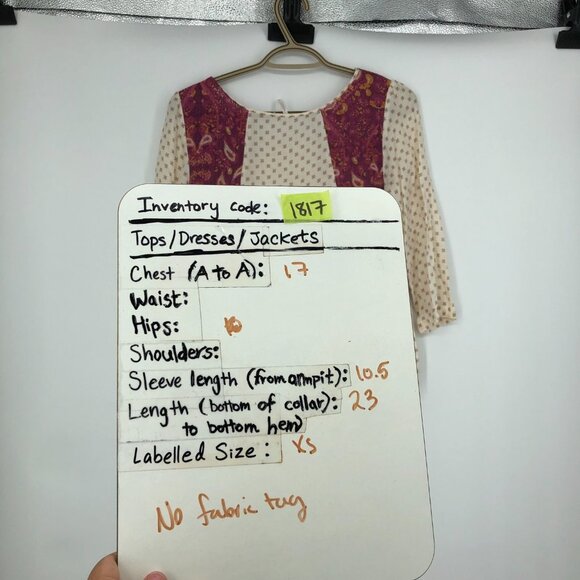 Inventory code: 1817
Tops/Dresses/Jackets
Chest (A to A): 17
Waist:
Hips:
Shoulders:
Sleeve length (from armpit): 10.5
Length (bottom of collar): 23
to bottom hem)
Labelled Size: XS
No fabric tag